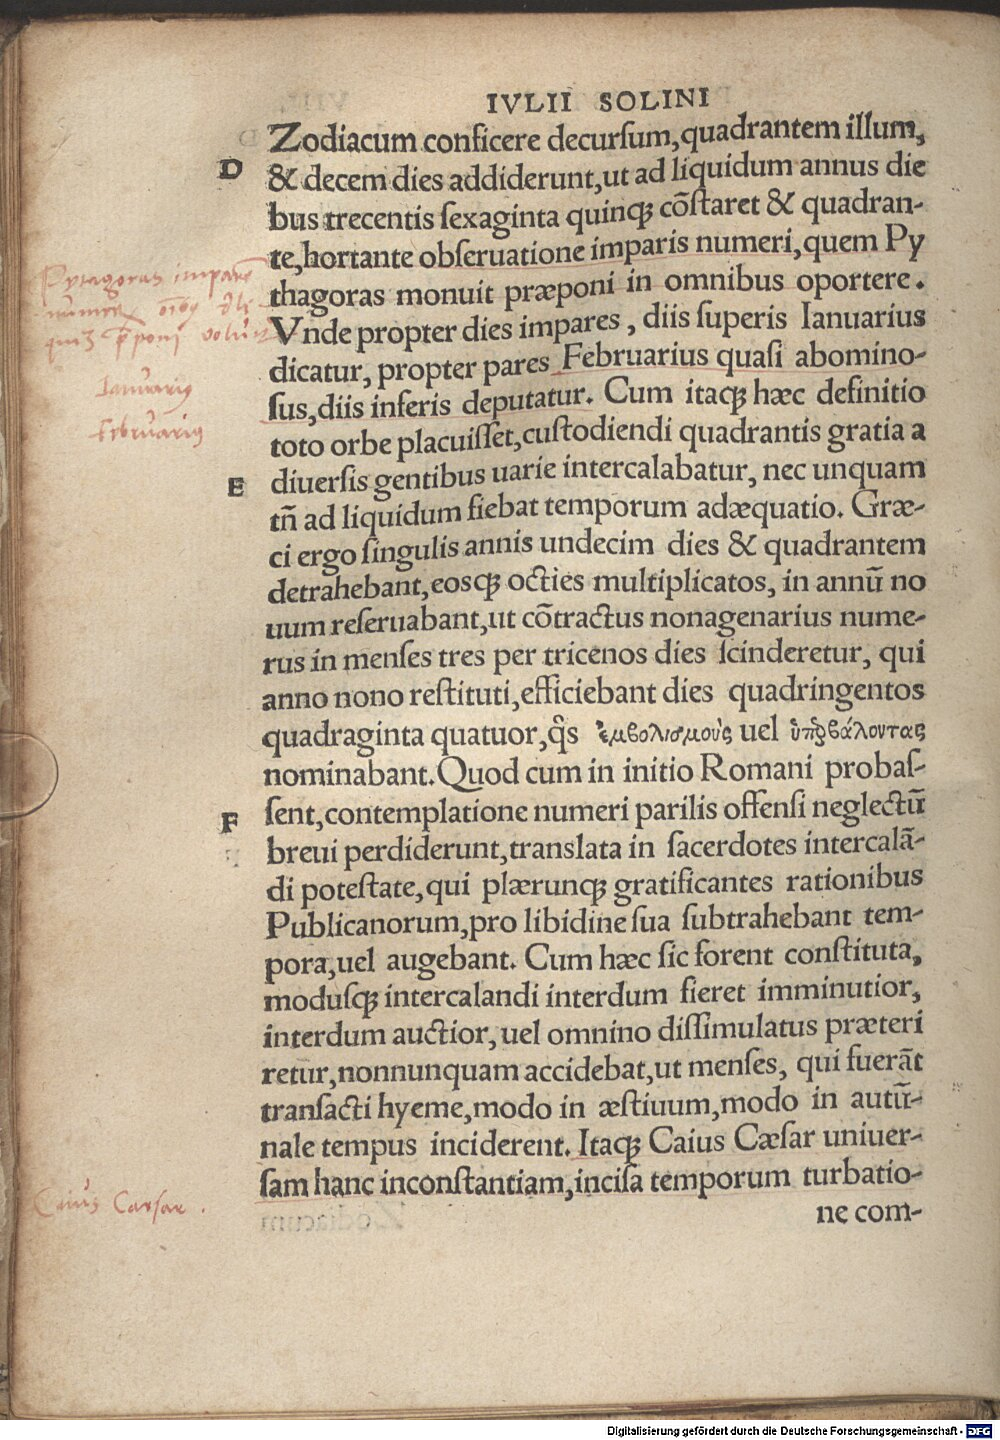 IVLII SOLINI
Zodiacum conficere decurſum,quadrantem illum,
D
& decem dies addiderunt,ut ad liquidum annus die
bus trecentis ſexaginta quinqꝫ cōſtaret & quadran-
te,hortante obſeruatione imparis numeri,quem Py
thagoras monuit præponi in omnibus oportere.
Vnde propter dies impares, diis ſuperis Ianuarius
dicatur, propter pares Februarius quaſi abomino-
ſus,diis inferis deputatur. Cum itaqꝫ hæc definitio
toto orbe placuiſſet,cuſtodiendi quadrantis gratia a
E
diuerſis gentibus uarie intercalabatur, nec unquam
tn̄ ad liquidum fiebat temporum adæquatio. Græ-
ci ergo ſingulis annis undecim dies & quadrantem
detrahebant,eosqꝫ octies multiplicatos, in annū no
uum reſeruabant,ut cōtractus nonagenarius nume-
rus in menſes tres per tricenos dies ſcinderetur, qui
anno nono reſtituti,efficiebant dies quadringentos
quadraginta quatuor,q̄s ἐμβολισμοὺς uel ὑπερβάλοντας
nominabant.Quod cum in initio Romani probaſ-
F
ſent,contemplatione numeri parilis offenſi neglectū
breui perdiderunt,translata in ſacerdotes intercalā-
di poteſtate,qui plærunqꝫ gratificantes rationibus
Publicanorum,pro libidine ſua ſubtrahebant tem-
pora,uel augebant. Cum hæc ſic forent conſtituta,
moduſqꝫ intercalandi interdum fieret imminutior,
interdum auctior, uel omnino diſſimulatus præteri
retur,nonnunquam accidebat,ut menſes, qui fuerāt
tranſacti hyeme,modo in æſtiuum,modo in autū-
nale tempus inciderent. Itaqꝫ Caius Cæſar uniuer-
ſam hanc inconſtantiam,inciſa temporum turbatio-
ne com-
Pytagoras imparē
Ianuarius
Februarius
Caius Caesar.
Digitalisierung gefördert durch die Deutsche Forschungsgemeinschaft - DFG